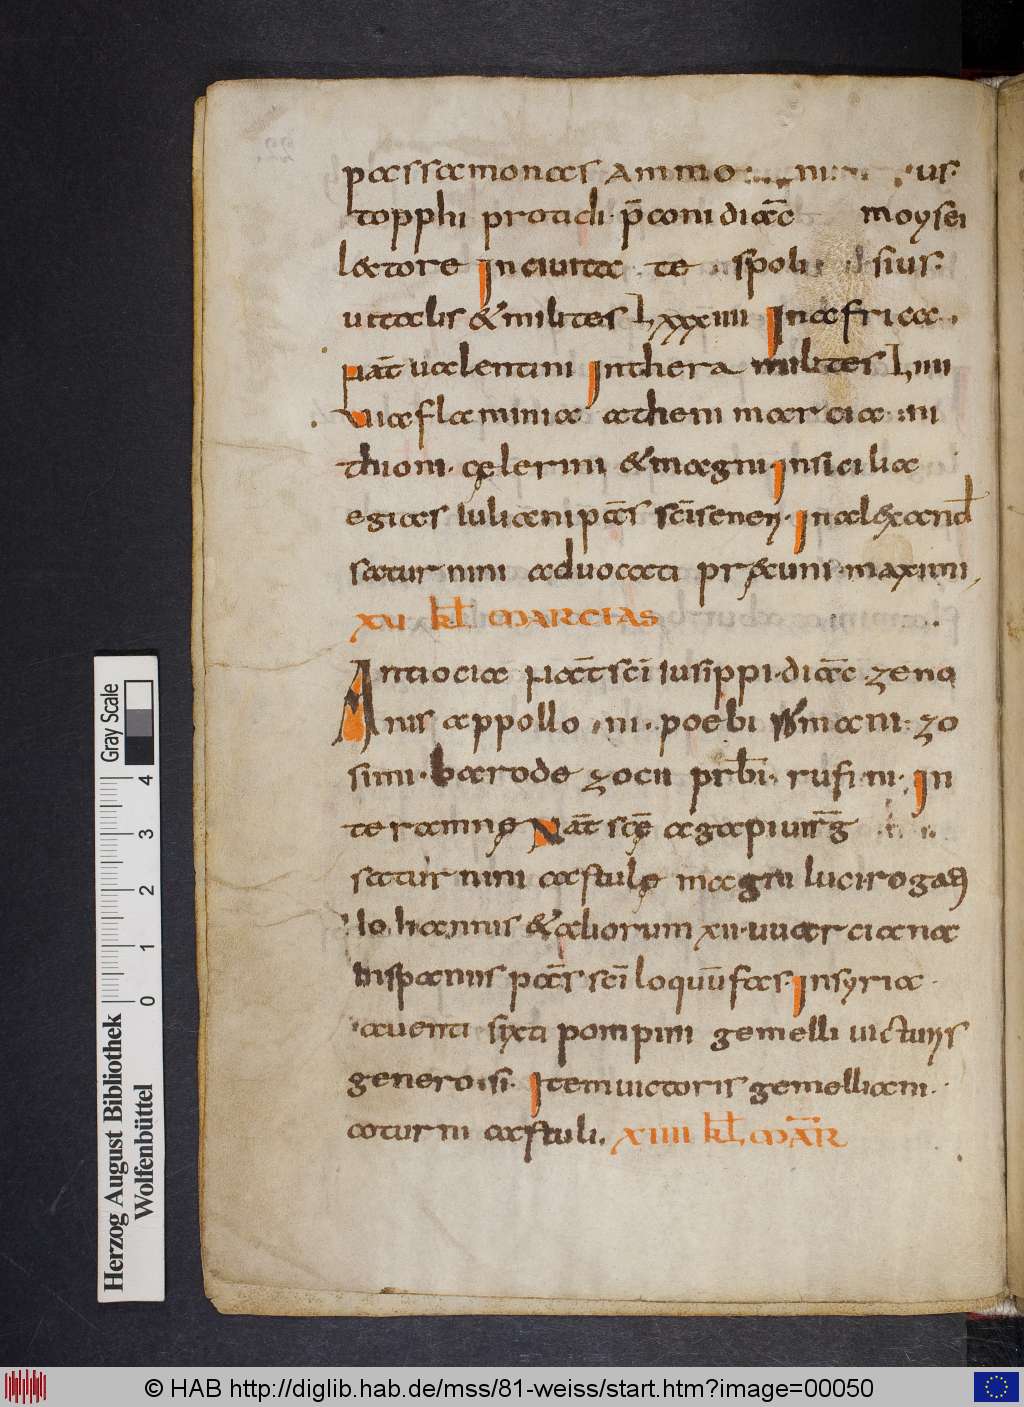 passamonas ammo ni us
topphi protidi · p̄coni diac̄ moysei
lectore In ciuitate spoli sius·
uitalis & milites Lxxxiiii In africa ·
nat̄ ualentini In thera milites Liiii
Uia flaminia atheni marcia ni
thioni · cęlerini & magni · In sicilia
egias iuliani pas̄ sci̅ seneri · In alexand
saturnini aduocati prexuni · maximi
xu kl MARCIAS
Antiocia nat̄ sci̅ iusippi · diac̄ · zeno
nis appollo ni · poebi ammani · zo
simi · barode zocii prb̄i · rufini · In
teramnę Nat̄ scę̄ agapi uirḡ
saturnini castulę magni luci rogati
Iohannis & aliorum xii · uuarciana
hispanus pas̄ sci̅ loquūfas · In syria ·
iauenti sixti pompini gemelli uicturis
generosi · Item uictoris gemelliani ·
coturni castuli · xiiii kl mār
Gray Scale
4
3
2
1
0
Herzog August Bibliothek
Wolfenbüttel
© HAB http://diglib.hab.de/mss/81-weiss/start.htm?image=00050